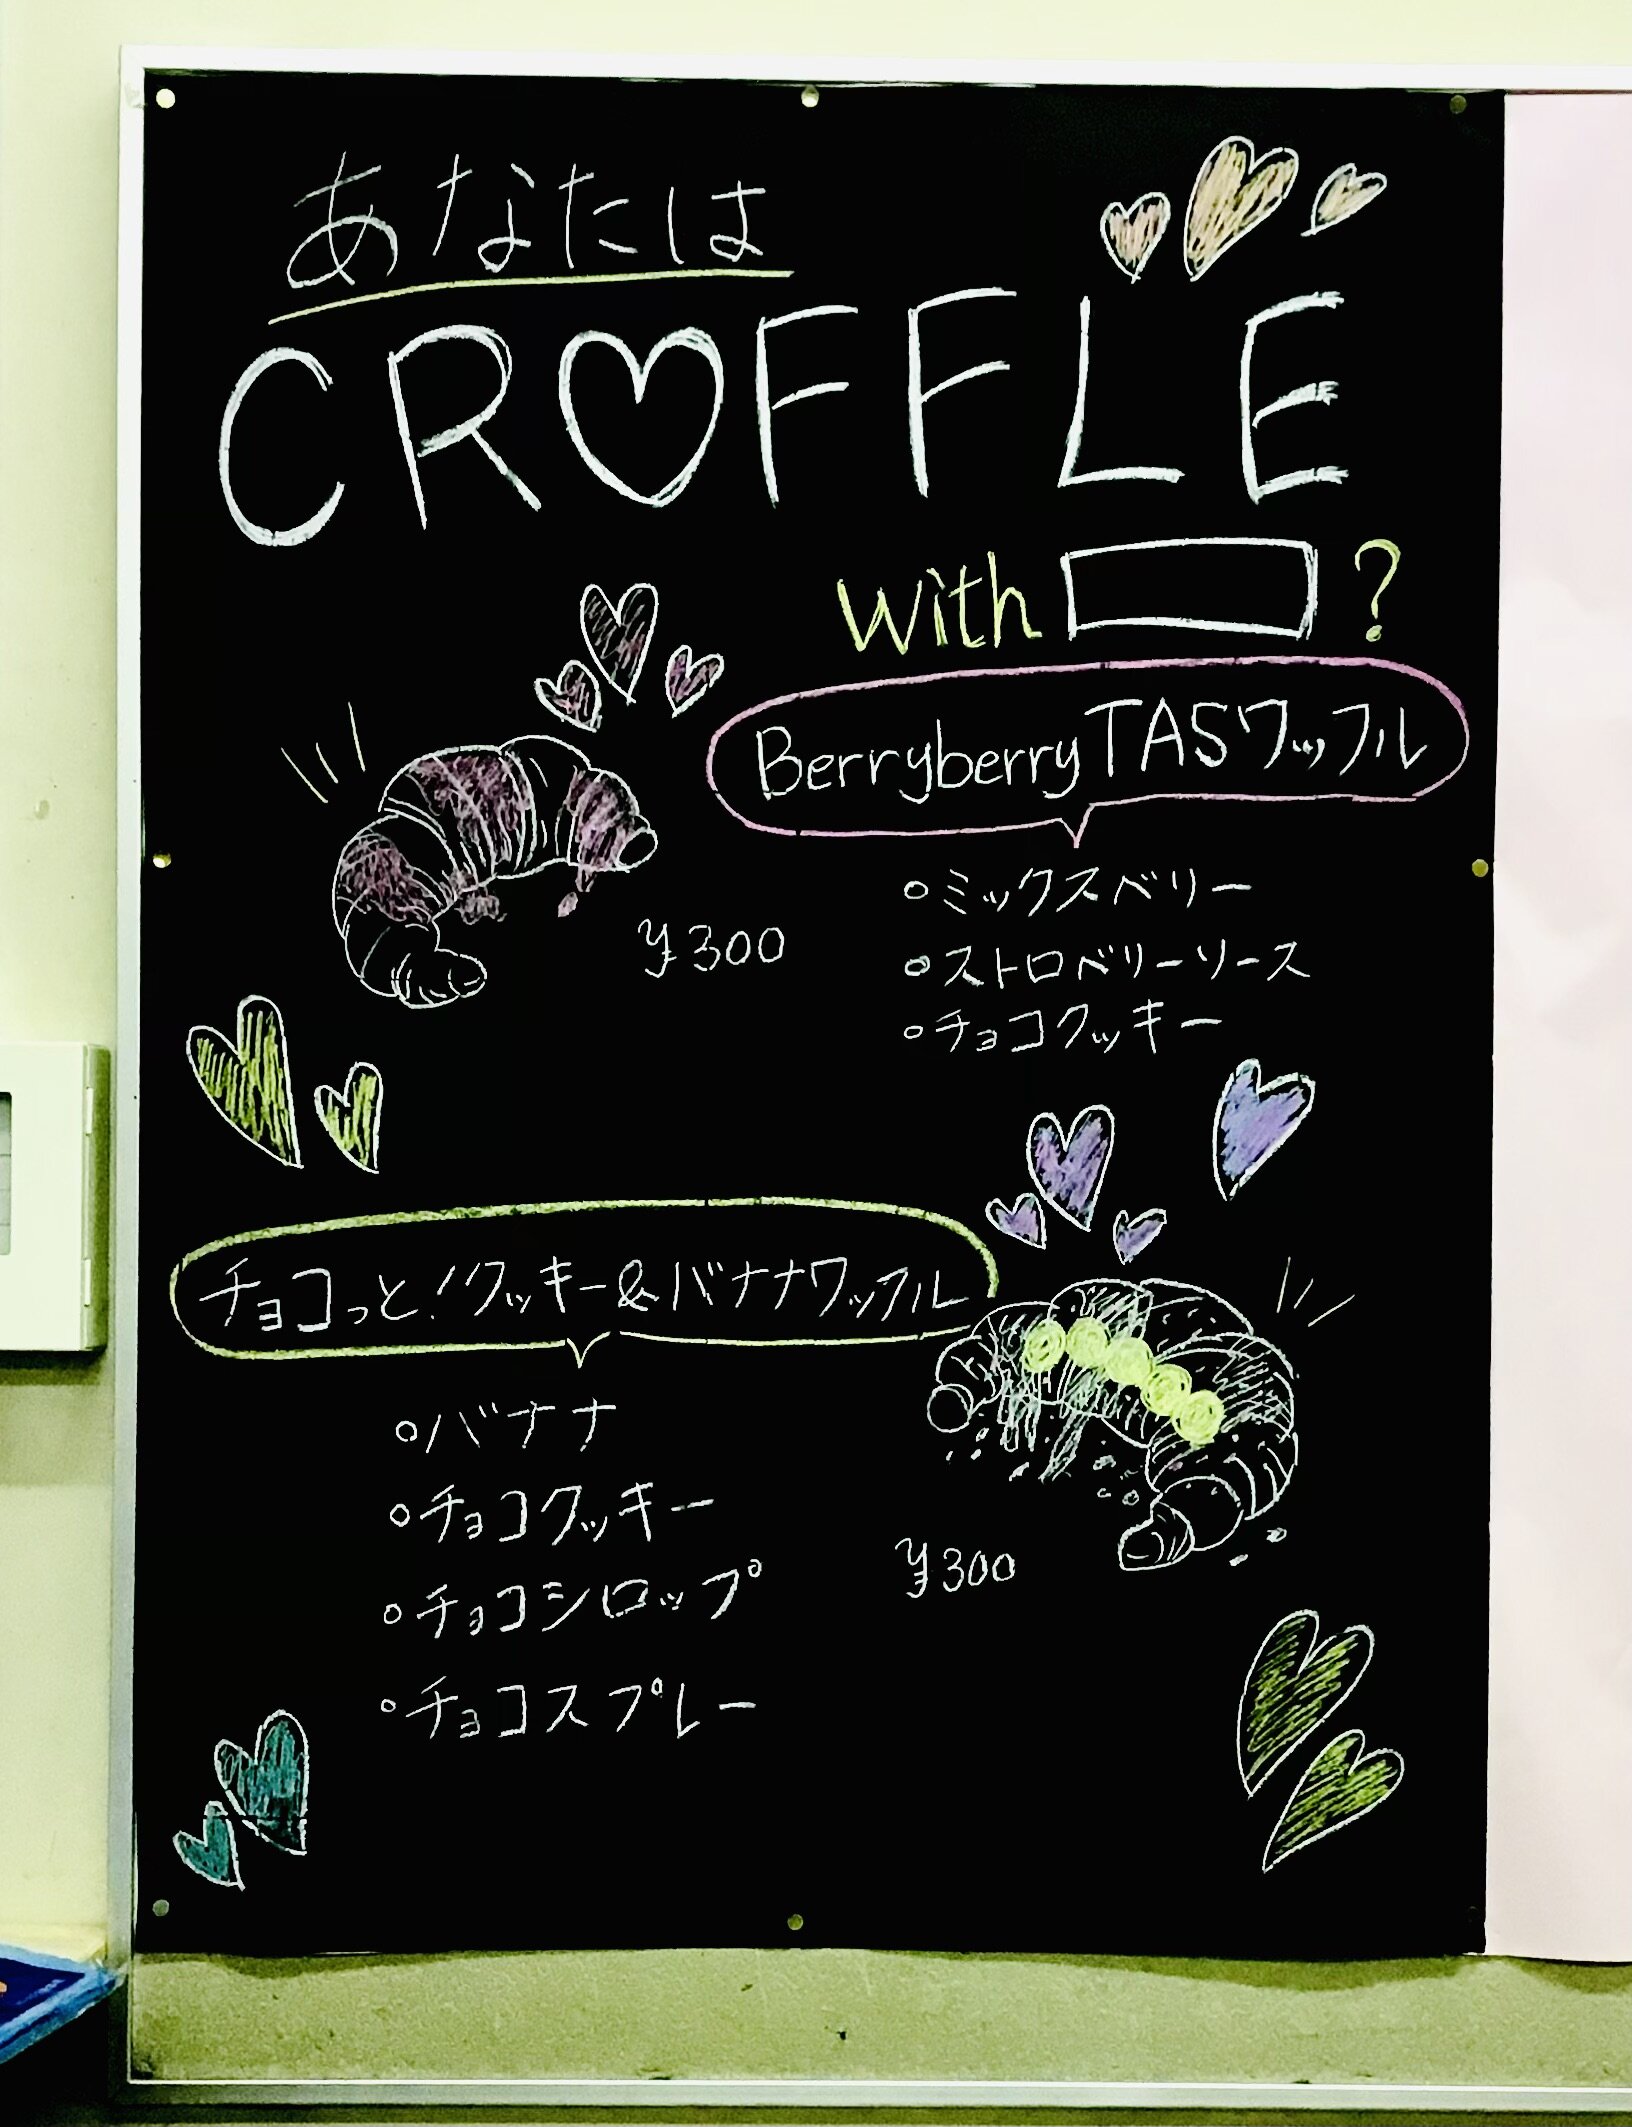 あなたは
CR♡FFLE
with ?
BerryberryTASワッフル
◦ミックスベリー
◦ストロベリーソース
◦チョコクッキー
¥300
チョコっと!クッキー&バナナワッフル
◦バナナ
◦チョコクッキー
◦チョコシロップ
◦チョコスプレー
¥300